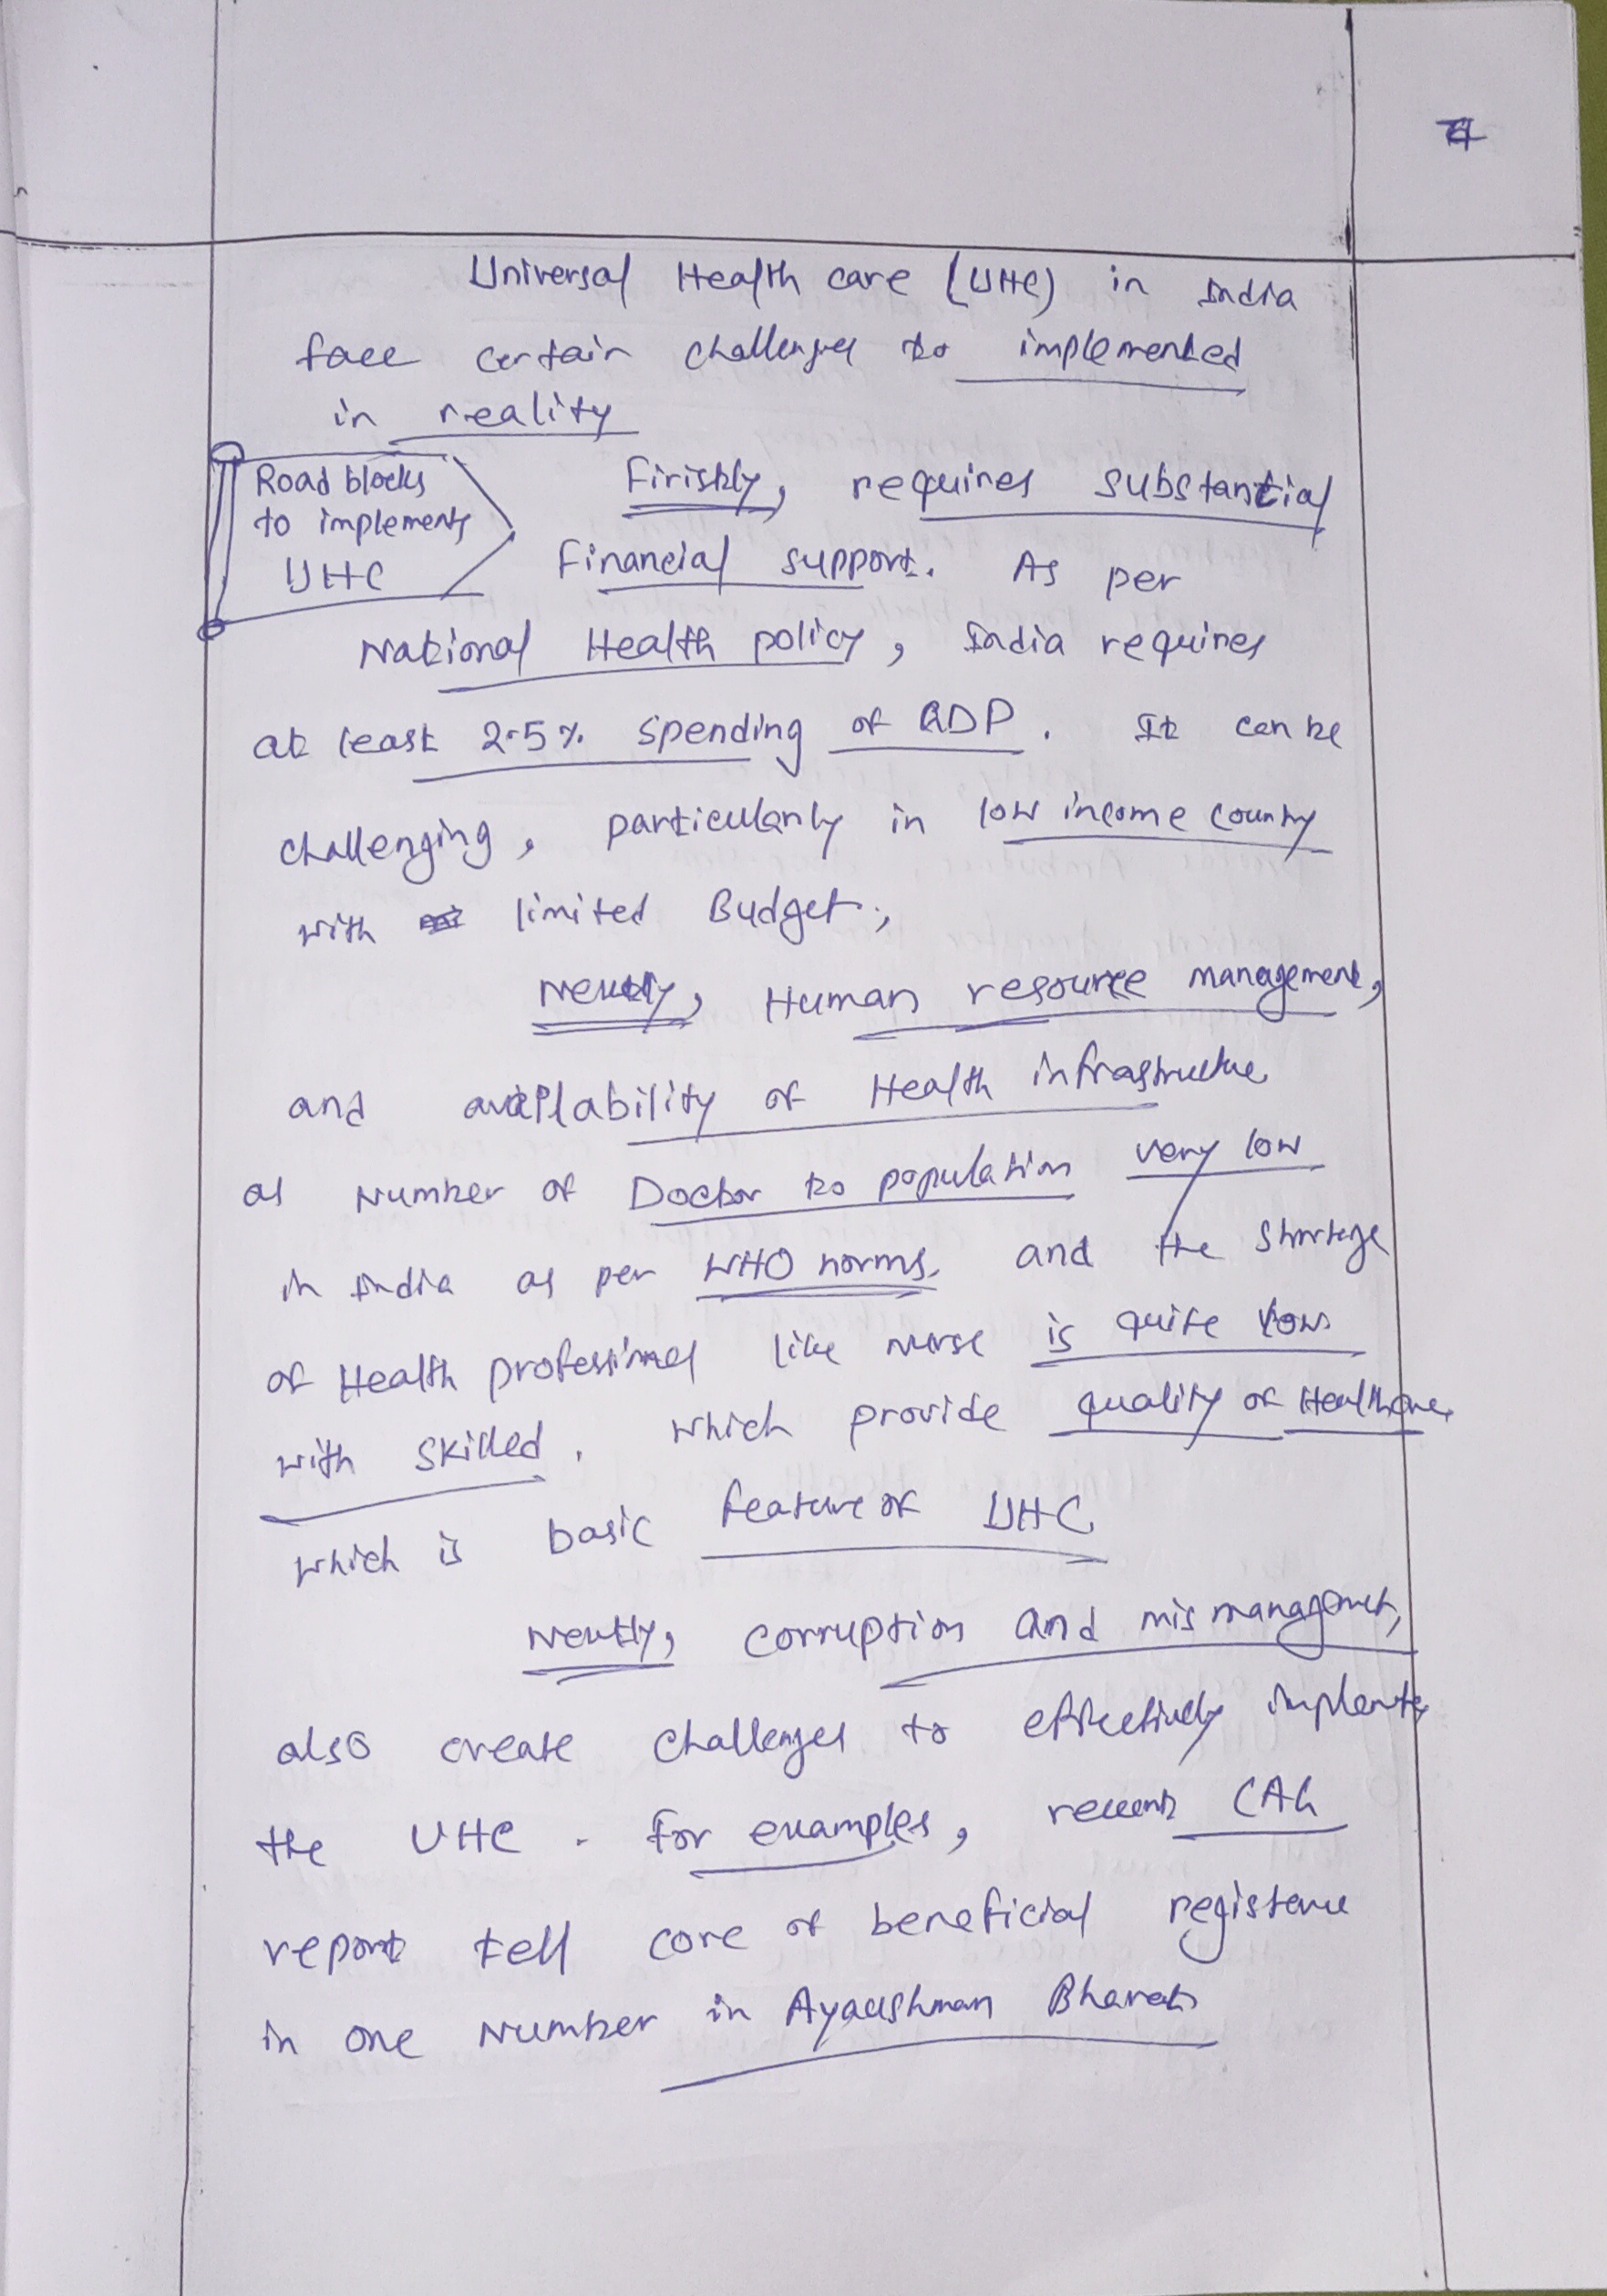 Universal Health care (UHC) in India
face certain challenges to implemented
in reality
Road blocks
to implements
UHC
Firistly, requires substantial
Financial support. As per
National Health policy, India requires
at least 2.5% spending of GDP. It can be
challenging, particularly in low income country
with limited Budget;
Nextly, Human resource management,
and availability of Health infrastructure
as Number of Doctor to population very low
in India as per WHO norms. and the shortage
of Health professional like nurse is quite low
with skilled. which provide quality of Healthcare,
which is basic feature of UHC
Nextly, corruption and mismanagement,
also create challenges to effectively
the UHC. For examples, recent CAG
report tell core of beneficial
in one Number in Ayaushman Bharat